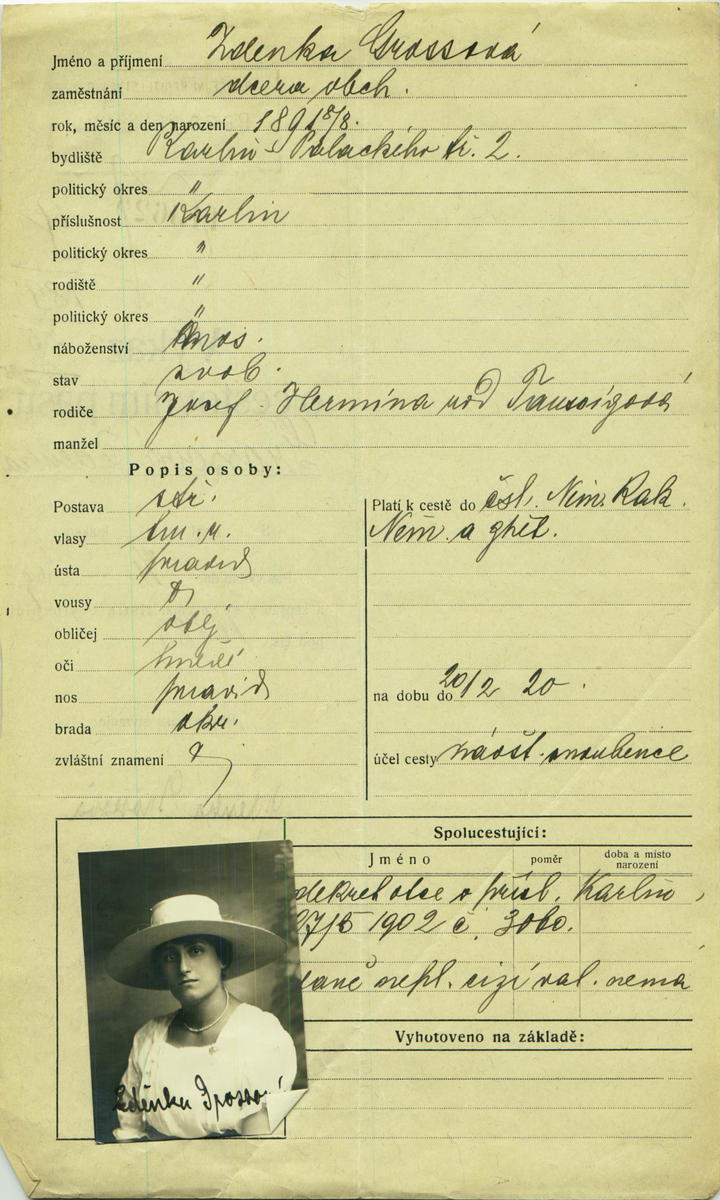 Jméno a příjmení Zdenka Grossová
zaměstnání dcera obch.
rok, měsíc a den narození 1891 8/8.
bydliště Karlín - Palackého tř. 2.
politický okres "
příslušnost Karlín
politický okres "
rodiště "
politický okres "
náboženství
stav svob.
rodiče Josef Hermína rod Taussigová
manžel
Popis osoby:
Postava stř.
vlasy tm. h.
ústa pravid
vousy
obličej obl
oči hnědé
nos pravid
brada okr.
zvláštní znamení
Platí k cestě do čsl. Něm. Rak.
Něm. a zpět.
na dobu do 20/2 20.
účel cesty návšt. snoubence
Spolucestující:
Jméno poměr doba a místo narození
dekret otce o přísl. Karlín,
27/5 1902 č. 3060.
daně nepl. cizí val. nemá
Vyhotoveno na základě:
Zdenka Grossová